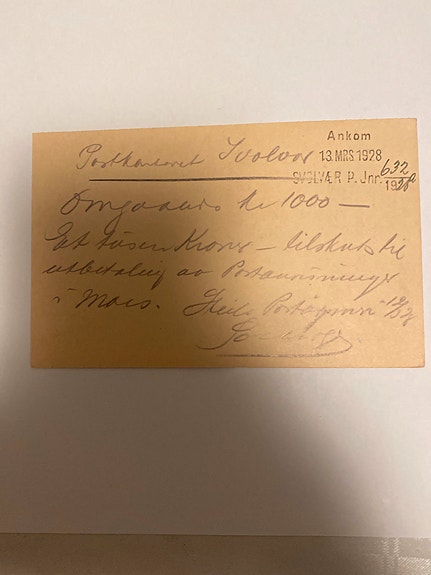 Ankom
Postkontoret Svolvær 13. MRS. 1928
SVOLVÆR P. Jnr. 632
1928
Omgaaende kr 1000 —
Et tusen Kroner — tilskuds til
utbetaling av Postanvisninger
i Mars.